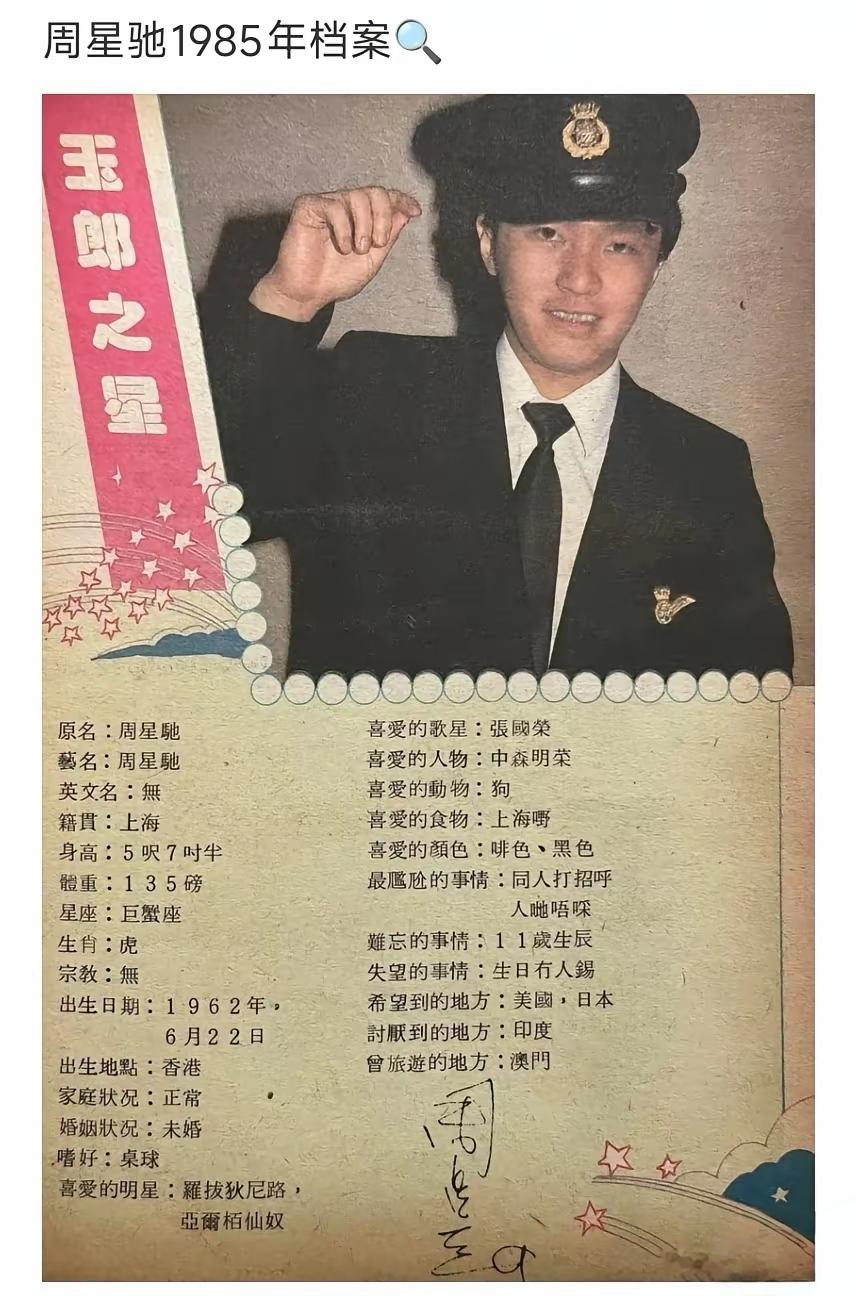 周星驰1985年档案
玉郎之星
原名：周星馳
藝名：周星馳
英文名：無
籍貫：上海
身高：5呎7吋半
體重：135磅
星座：巨蟹座
生肖：虎
宗教：無
出生日期：1962年，
6月22日
出生地點：香港
家庭狀况：正常
婚姻狀况：未婚
嗜好：桌球
喜愛的明星：羅拔狄尼路，
亞爾栢仙奴
喜愛的歌星：張國榮
喜愛的人物：中森明菜
喜愛的動物：狗
喜愛的食物：上海嘢
喜愛的顏色：啡色、黑色
最尶尬的事情：同人打招呼
人哋唔啋
難忘的事情：11歲生辰
失望的事情：生日冇人錫
希望到的地方：美國，日本
討厭到的地方：印度
曾旅遊的地方：澳門
周星馳